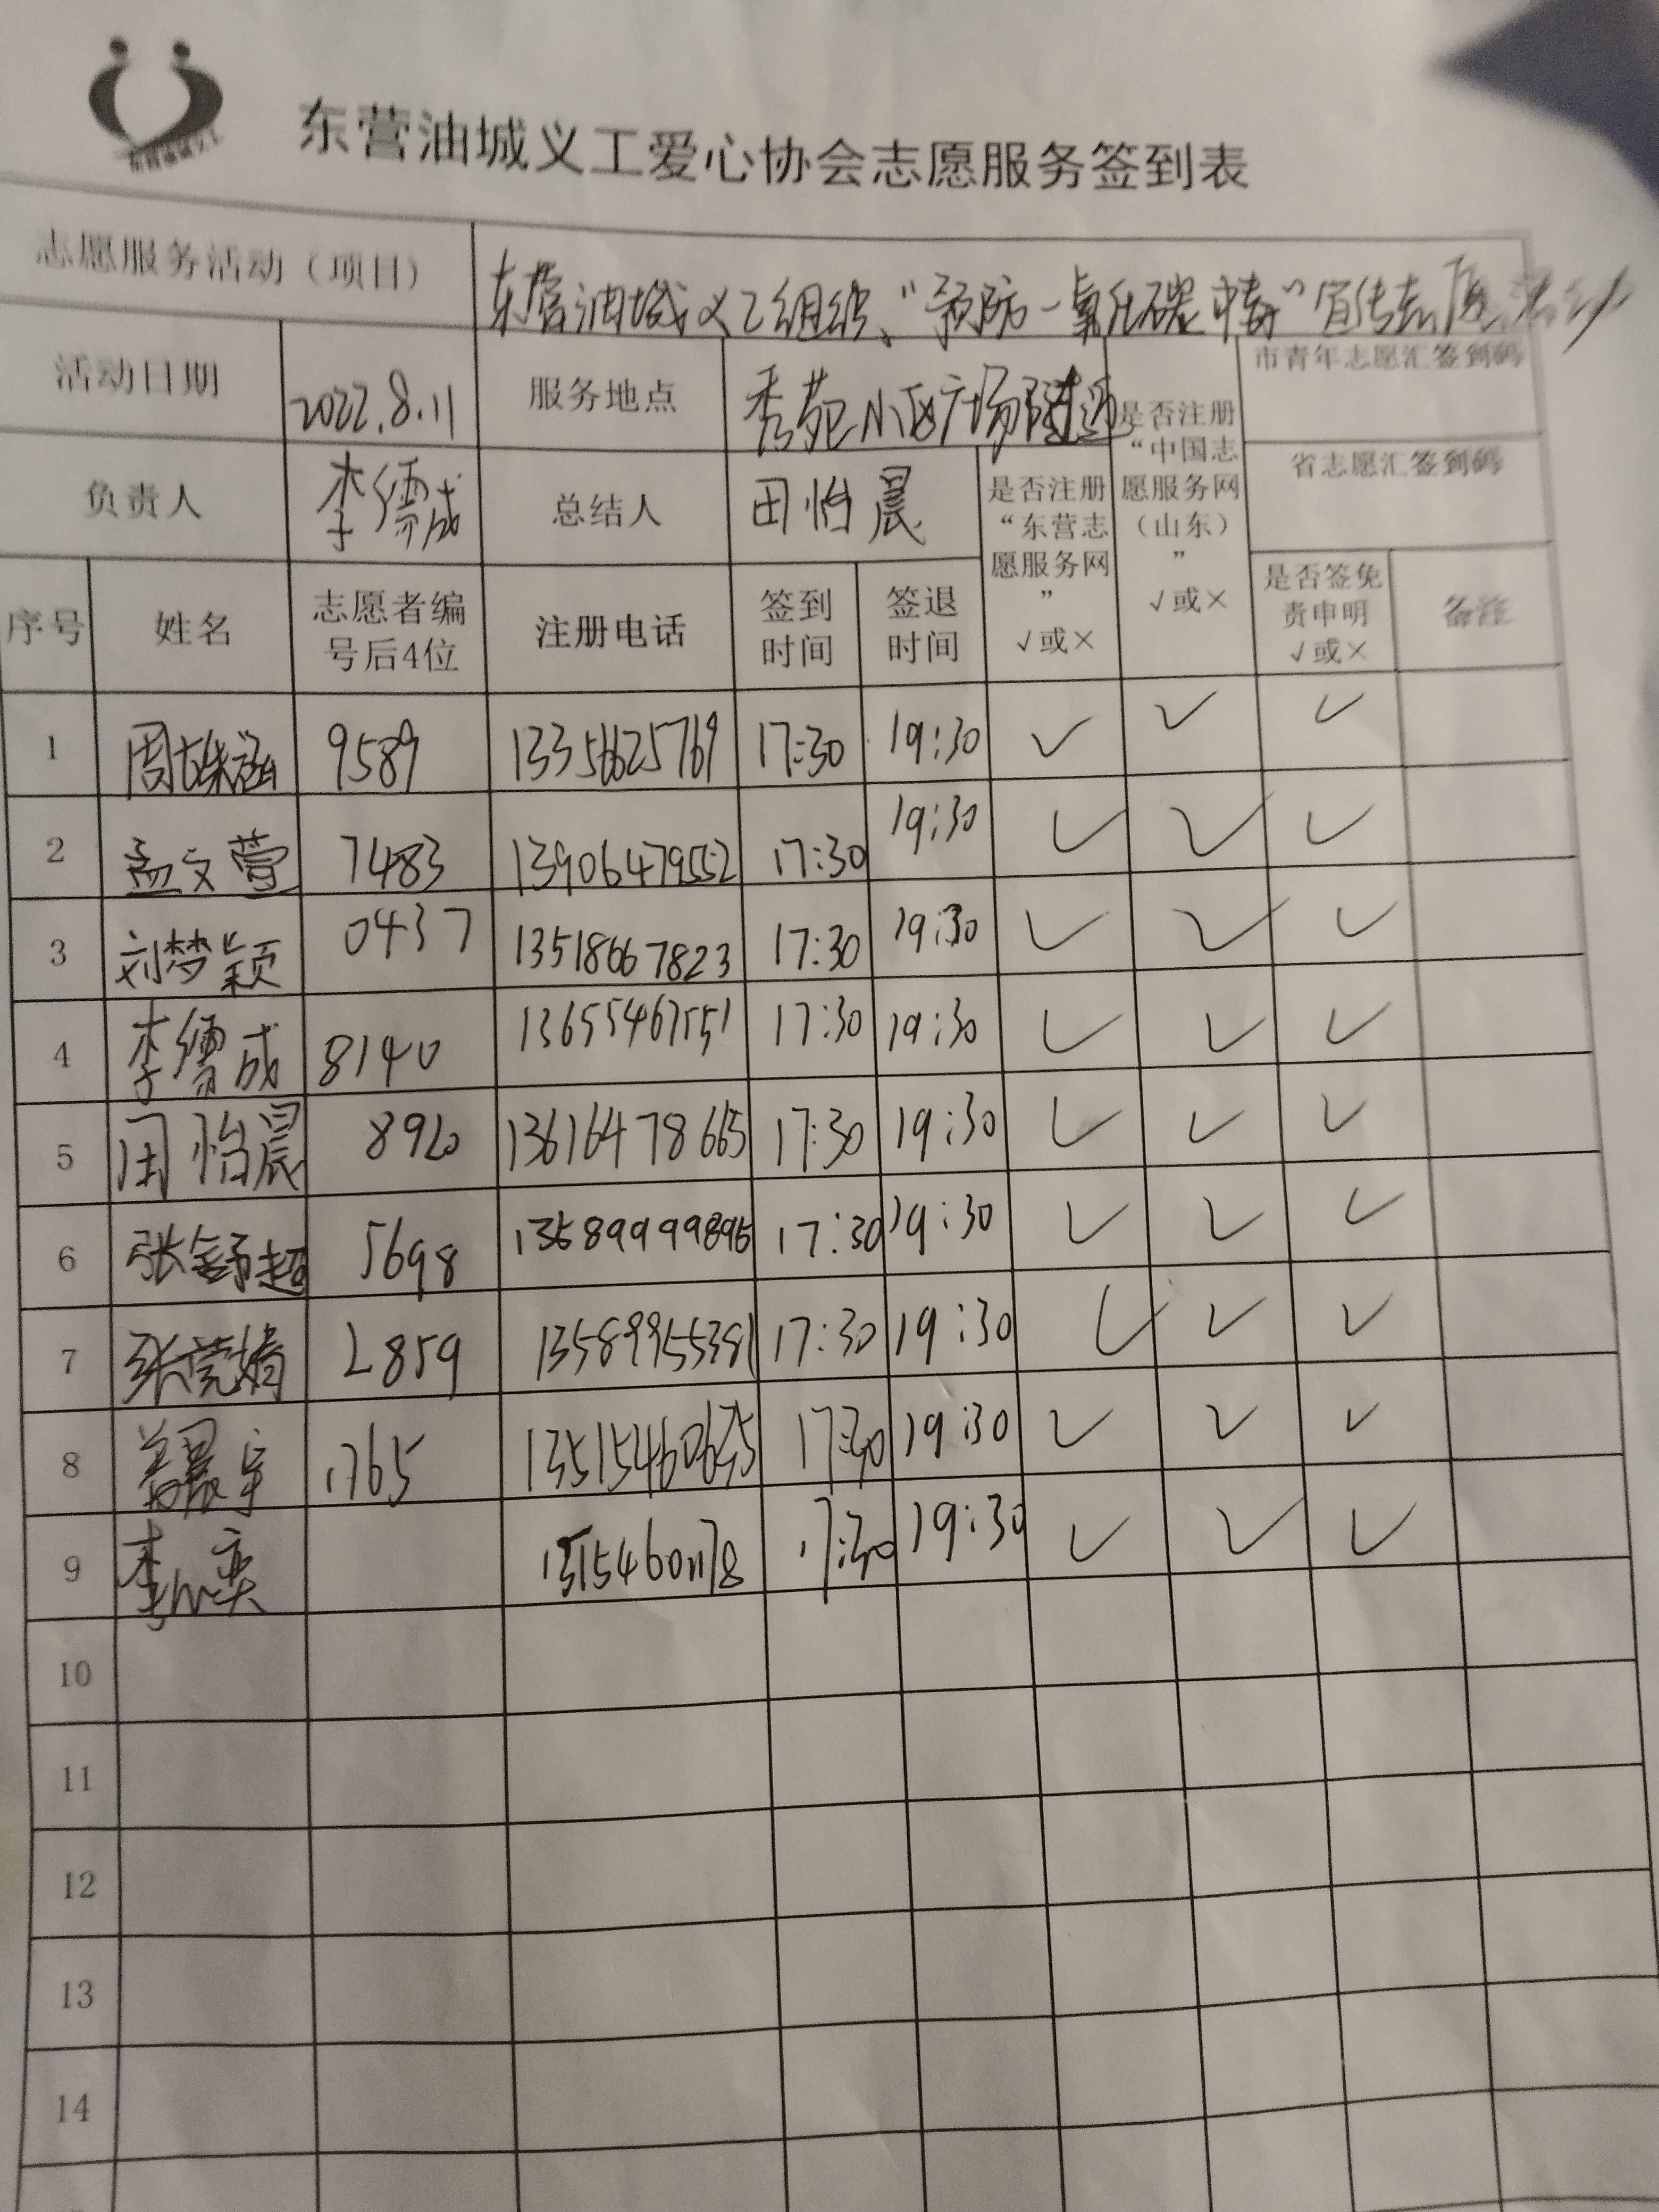 东营油城义工
东营油城义工爱心协会志愿服务签到表
志愿服务活动（项目） 东营油城义工组织“预防一氧化碳中毒”宣传志愿
活动日期 2022.8.11 服务地点 秀苑小区广场附近 是否注册“中国志愿服务网（山东）” √或× 市青年志愿汇签到码
负责人 李儒成 总结人 田怡晨 是否注册“东营志愿服务网” √或× 省志愿汇签到码
序号 姓名 志愿者编号后4位 注册电话 签到时间 签退时间 是否签免责申明 √或× 备注
1 周 涵 9589 13356625769 17:30 19:30 ✓ ✓ ✓
2 孟文萱 7483 13906479552 17:30 19:30 ✓ ✓ ✓
3 刘梦颖 0437 13518667823 17:30 19:30 ✓ ✓ ✓
4 李儒成 8140 13655467551 17:30 19:30 ✓ ✓ ✓
5 田怡晨 8920 13616478665 17:30 19:30 ✓ ✓ ✓
6 张舒超 5698 17:30 19:30 ✓ ✓ ✓
7 张 婧 2859 13589955381 17:30 19:30 ✓ ✓ ✓
8 晨宇 1765 13515460635 17:30 19:30 ✓ ✓ ✓
9 李 奕 17:30 19:30 ✓ ✓ ✓
10
11
12
13
14